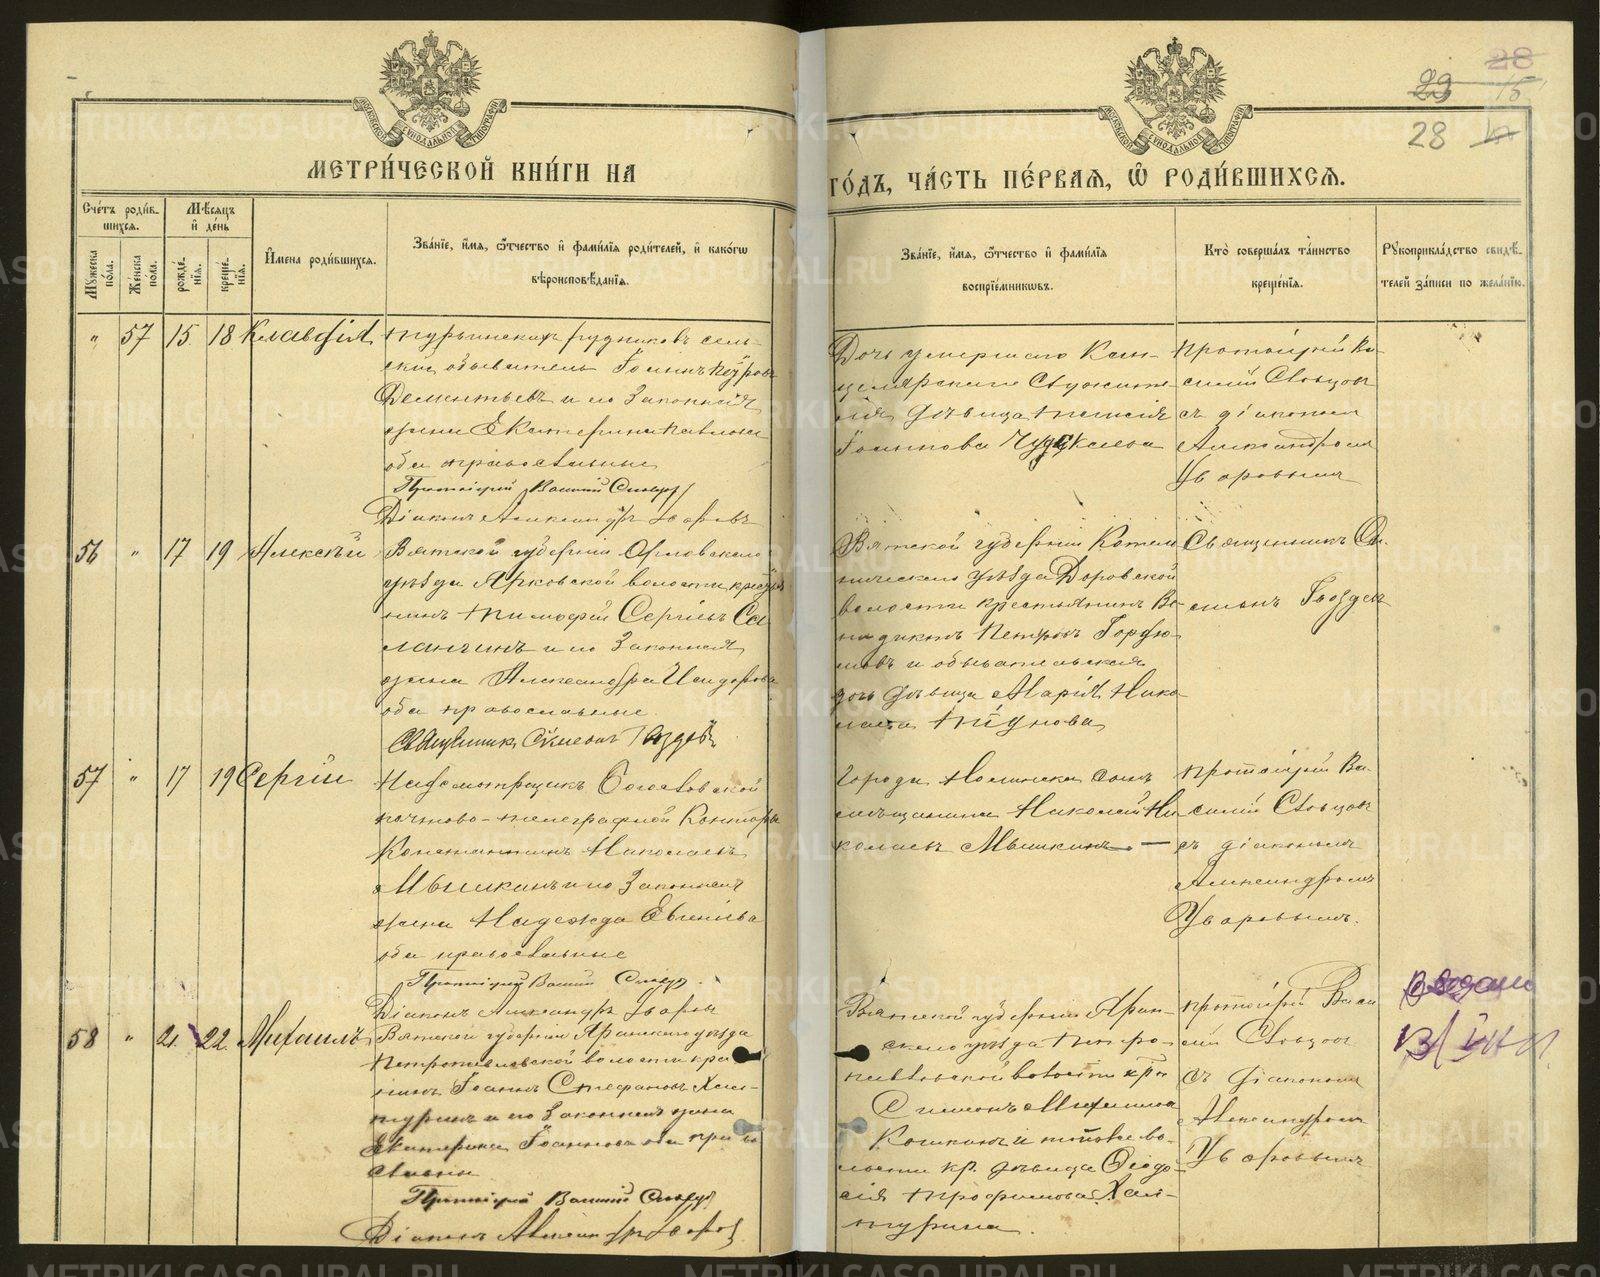 28
29
15
28
МЕТРИ́ЧЕСКОЙ КНИ́ГИ НА
ГО́ДЪ, ЧА́СТЬ ПЕ́РВАЯ, Ѡ҆ РОДИ́ВШИХСЯ.
Сче́тъ роди́в-
шихся.
Мѣ́сяцъ
и҆ де́нь
Мꙋ́жеска по́ла.
Же́нска по́ла.
рожде́нїѧ.
креще́нїѧ.
И҆мена роди́вшихсѧ.
Зва́нїе, и҆́мѧ, ѻ҆́тчество и҆ фами́лїѧ роди́телей, и҆ како́гѡ
вѣроисповѣ́данїѧ.
Зва́нїе, и҆́мѧ, ѻ҆́тчество и҆ фами́лїѧ
воспрїе́мникѡвъ.
Кто̀ соверша́лъ та́инство
креще́нїѧ.
Рꙋкоприкла́дство свидѣ́-
телей за́писи по жела́нїю.
" 57 15 18 Клавдія
Турьинскихъ рудниковъ сель-
скій обыватель Іоаннъ Петровъ
Дементьевъ и его законная
жена Екатерина Павлова
оба православные
Протоіерей Василій Словцовъ
Діаконъ Александръ Уваровъ
Дочь умершаго Кан-
целярскаго Служите-
ля дѣвица Таисія
Іоаннова
Протоіерей Ва-
силій Словцовъ
съ діакономъ
Александромъ
Уваровымъ
56 " 17 19 Алексѣй
Вятской губерніи Орловскаго
уѣзда Ярковской волости крестья-
нинъ Тимофей Сергіевъ Са-
ланчинъ и его законная
жена Александра Исидорова
оба православные
Священникъ Симеонъ Гвоздевъ
Вятской губерніи Котель-
ническаго уѣзда Даровской
волости крестьянинъ Ве-
недиктъ Петровъ
и обывательская
дочь дѣвица Марія Нико-
лаева Тіунова
Священникъ Си-
меонъ Гвоздевъ
57 " 17 19 Сергій
Надсмотрщикъ Богословской
почтово-телеграфной Конторы
Константинъ Николаевъ
Мышкинъ и его законная
жена Надежда Евгеніева
оба православные
Протоіерей Василій Словцовъ
Діаконъ Александръ Уваровъ
Города Нолинска сынъ
мѣщанина Николай Ни-
колаевъ Мышкинъ. —
Протоіерей Ва-
силій Словцовъ
съ діакономъ
Александромъ
Уваровымъ.
58 " 21 22 Михаилъ
Вятской губерніи Яранскаго уѣзда
Петропавловской волости кре-
нинъ Іоаннъ Стефановъ Хал-
туринъ и его законная жена
Екатерина Іоаннова оба право-
славны
Протоіерей Василій Словцовъ
Діаконъ Александръ Уваровъ
Вятской губерніи Яран-
скаго уѣзда Петро-
павловской волости кр.
Симеонъ Михаиловъ
Кошкинъ и той же во-
лости кр. дѣвица Ѳеодо-
сія Трофимова Хал-
турина
Протоіерей Васи-
лій Словцовъ
съ діакономъ
Александромъ
Уваровымъ
METRIKI.GASO-URAL.RU